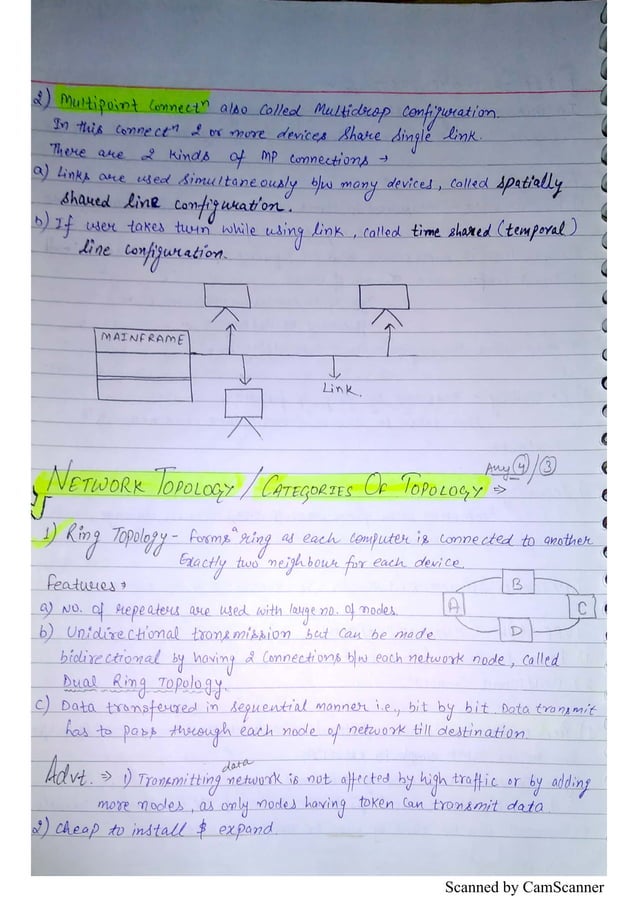 2) Multipoint Connectⁿ also called Multidrop Configuration.
In this connectⁿ 2 or more devices share single link.
There are 2 kinds of MP connections →
a) Links are used simultaneously b/w many devices, called spatially
shared line configuration.
b) If user takes turn while using link, called time shared (temporal)
line configuration.
MAINFRAME
Link
Any 4/3
NETWORK TOPOLOGY / CATEGORIES OF TOPOLOGY ⇒
1) Ring Topology - forms a ring as each computer is connected to another
Exactly two neighbour for each device.
features →
B
A
C
D
a) No. of repeaters are used with large no. of nodes.
b) Unidirectional transmission but can be made
bidirectional by having 2 connections b/w each network node, called
Dual Ring Topology.
c) Data transferred in sequential manner i.e., bit by bit. Data transmit
has to pass through each node of network till destination.
Advt. ⇒ 1) Transmitting data network is not affected by high traffic or by adding
more nodes, as only nodes having token can transmit data.
2) cheap to install $ expand
Scanned by CamScanner